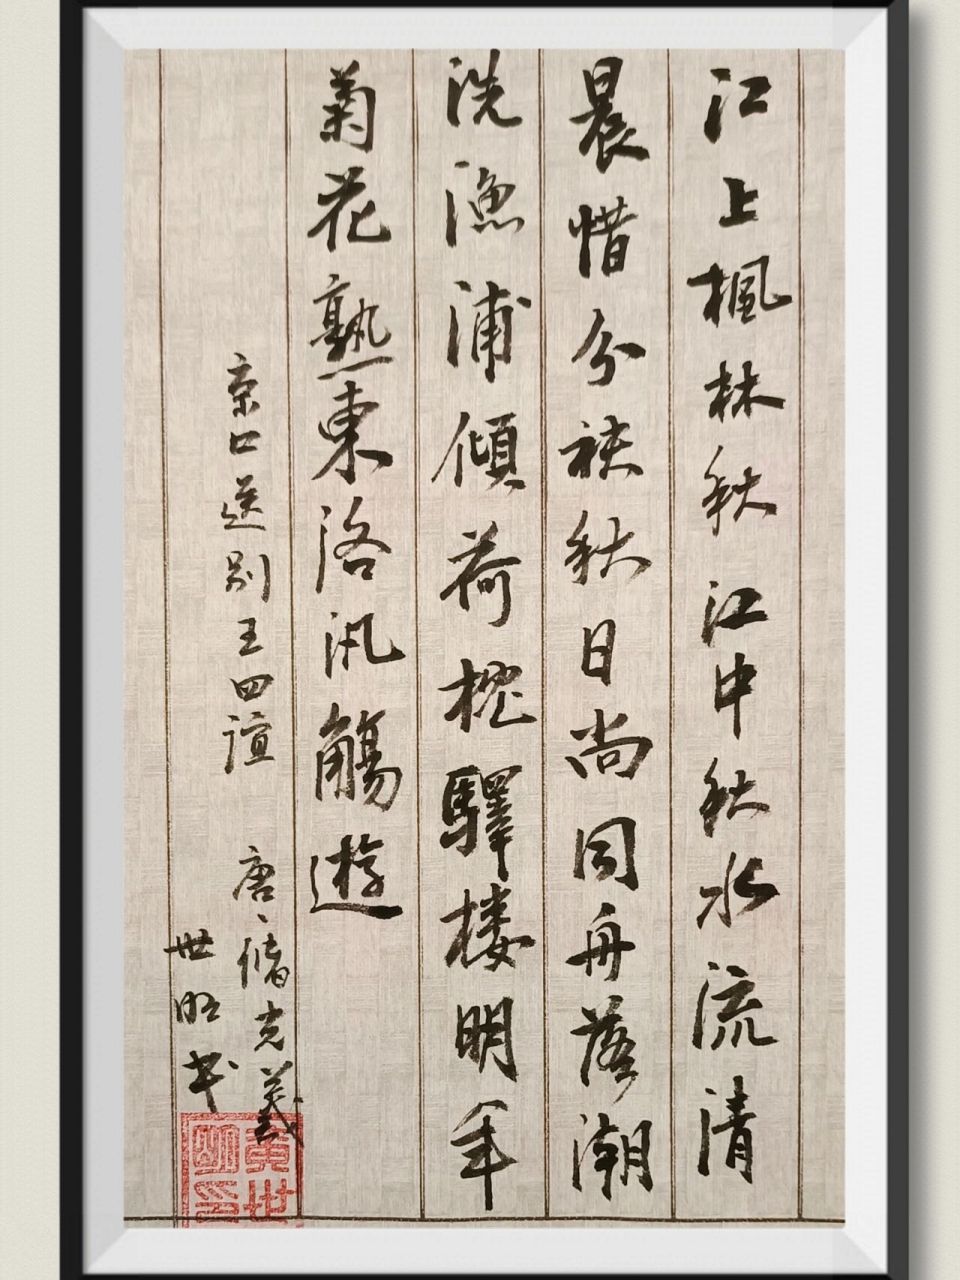 江上楓林秋江中秋水流清
晨惜分袂秋日尚同舟落潮
洗漁浦傾荷枕驛楼明年
菊花熟東洛汎觴遊
京口送别王四誼 唐、儲光羲
世明书
黄世明印